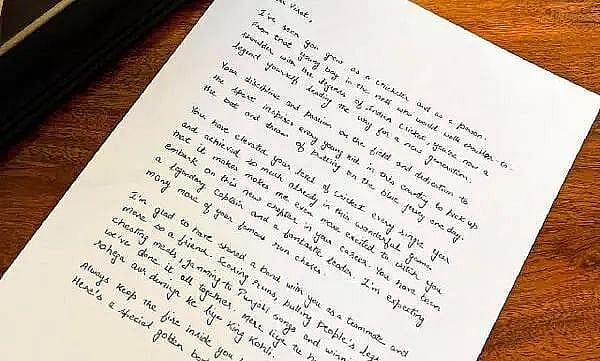 Virat,
I've seen you grow as a cricketer and as a person.
From that young boy in the nets who would walk shoulder-to-
shoulder with the legends of Indian Cricket, you're now a
legend yourself leading the way for a new generation.
Your discipline and passion on the field and dedication to
the sport inspires every young kid in this country to pick up
the bat and dream of putting on the blue jersey one day.
You have elevated your level of cricket every single year
and achieved so much already in this wonderful game
that it makes me even more excited to watch you
embark on this new chapter in your career. You have been
a legendary captain and a fantastic leader. I'm expecting
many more of your famous run chases.
I'm glad to have shared a bond with you as a teammate and
more so a friend. Scoring runs, pulling people's legs,
cheating meals, jamming to Punjabi songs and winning
we've done it all together. Mere liye tu
rahega aur duniya ke liye King Kohli.
Always keep the fire inside you
Here's a special golden